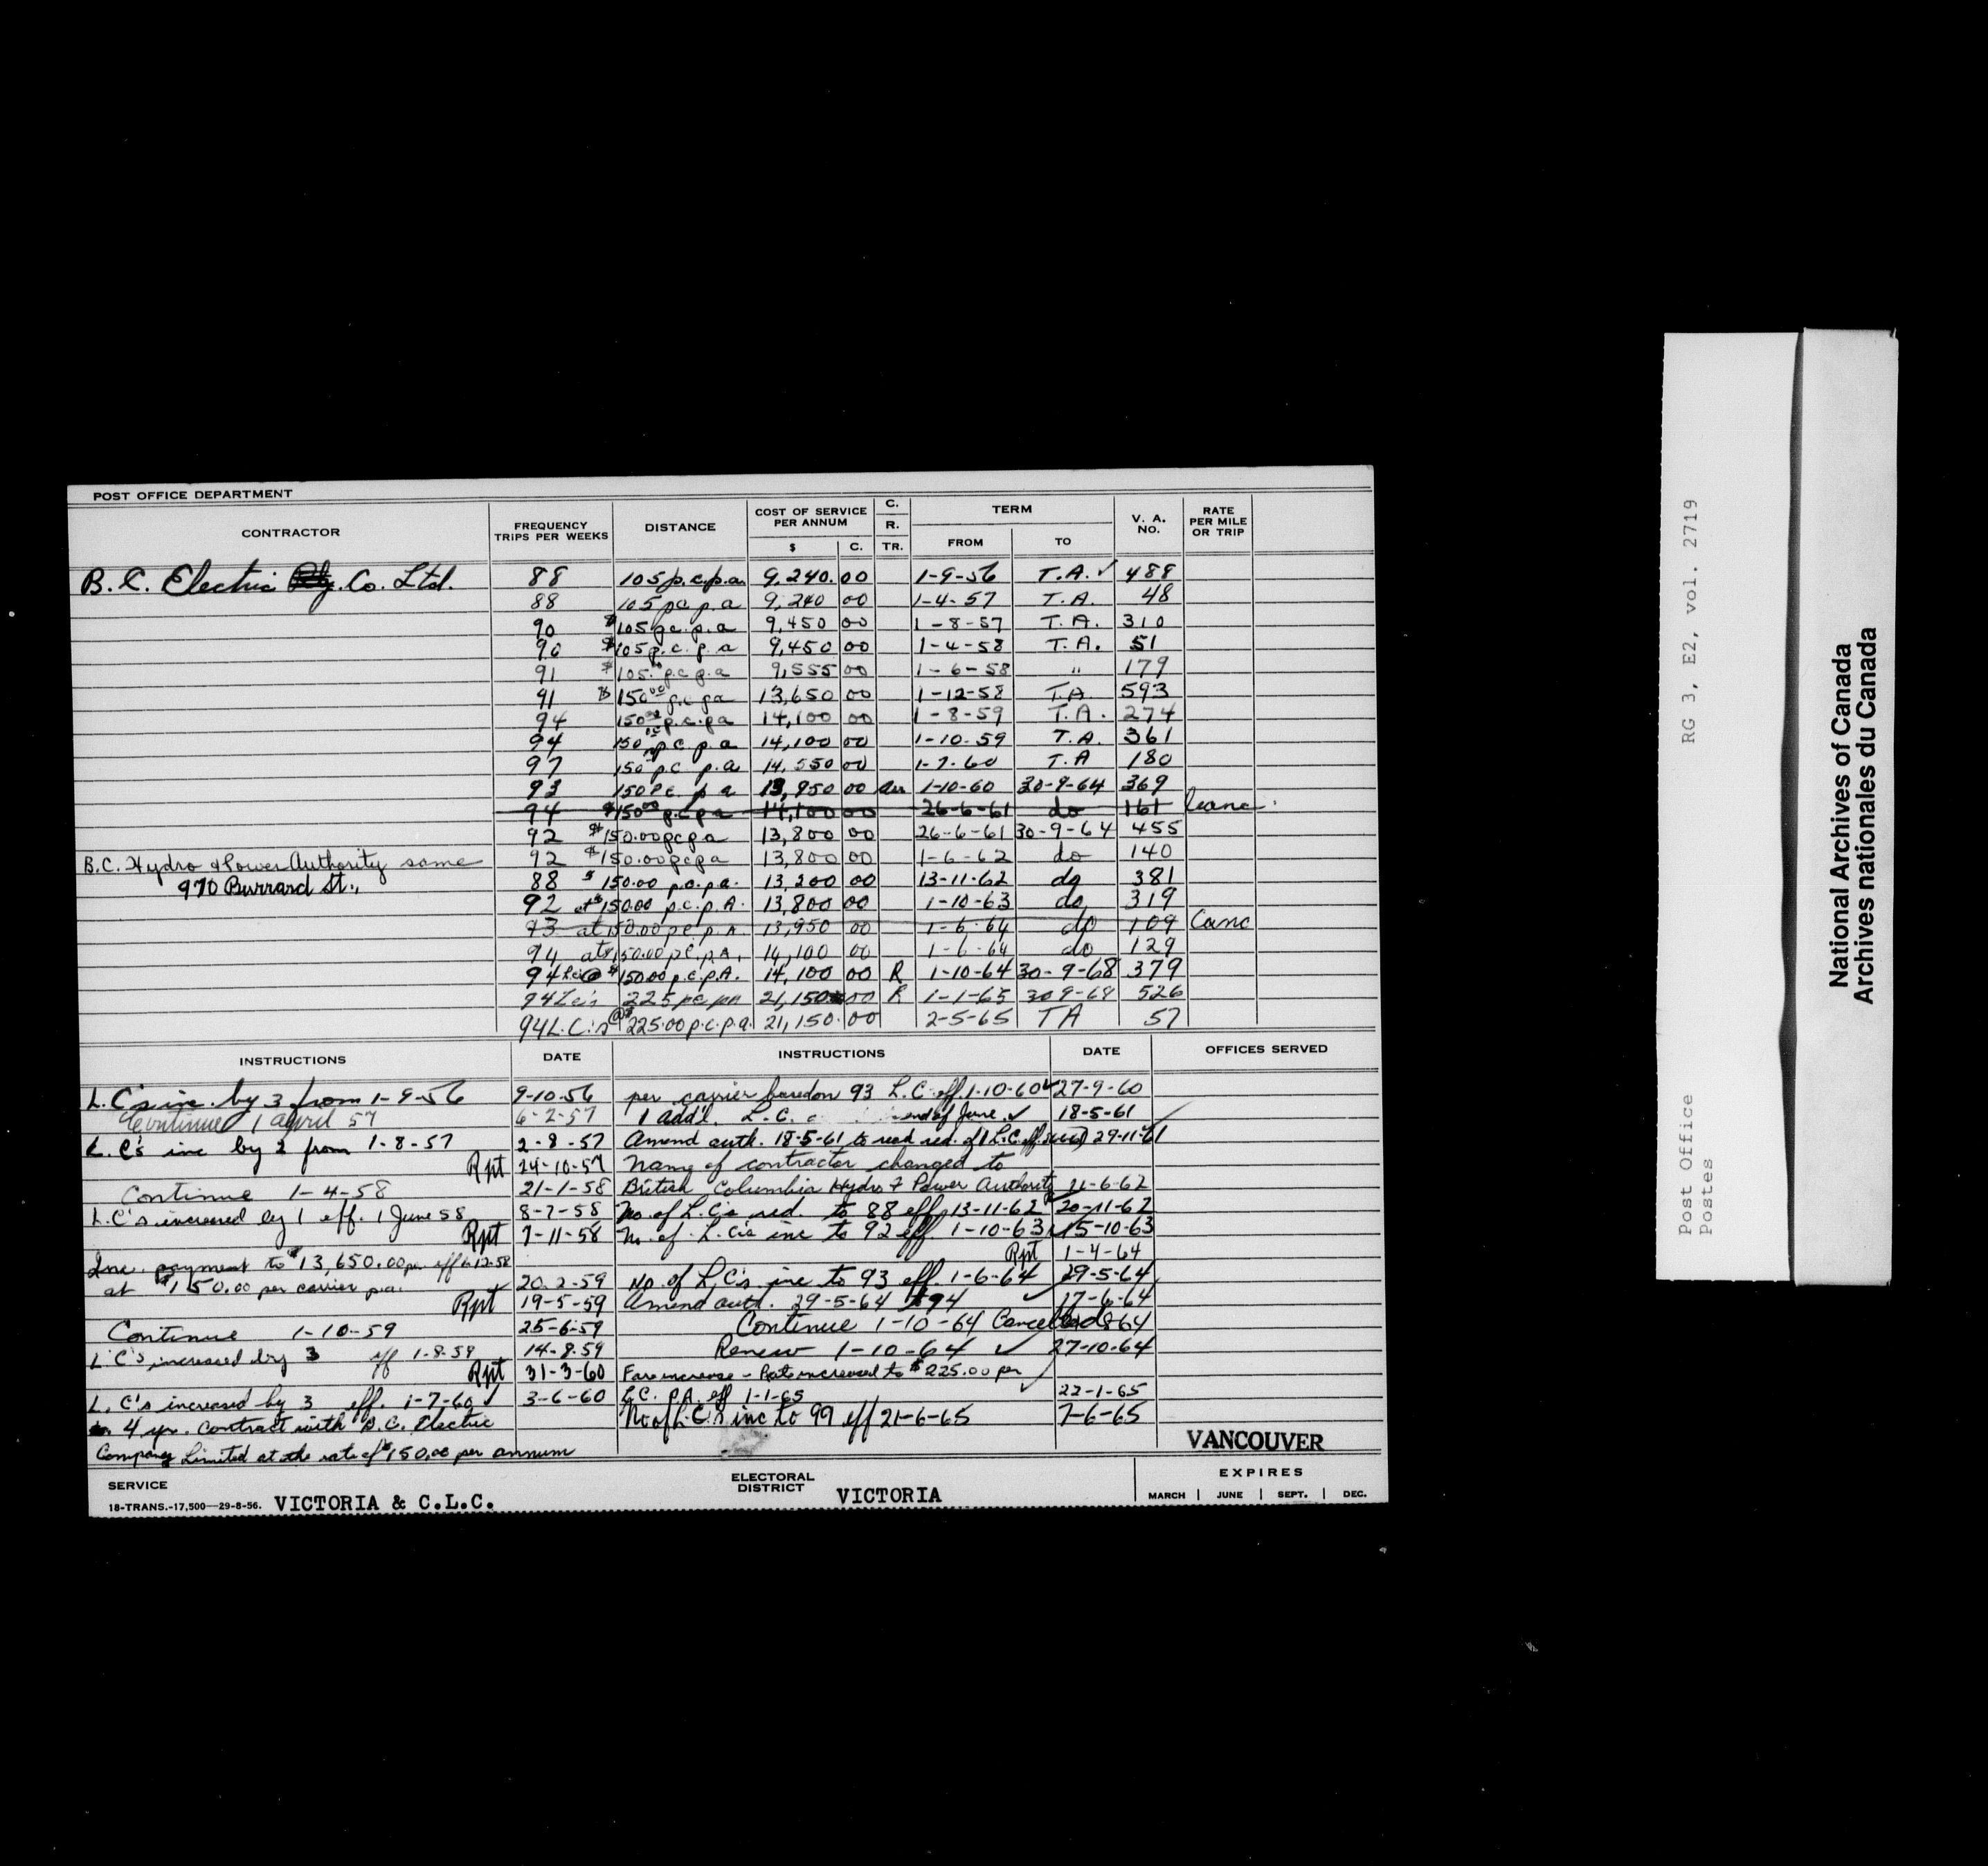 POST OFFICE DEPARTMENT
CONTRACTOR FREQUENCY TRIPS PER WEEKS DISTANCE COST OF SERVICE PER ANNUM $ C. C. R. TR. TERM FROM TO V. A. NO. RATE PER MILE OR TRIP
B.C. Electric Rly. Co. Ltd. 88 105 p.c.p.a. 9,240.00 1-9-56 T.A. ✓ 488
88 105 pc p.a 9,240 00 1-4-57 T.A. 48
90 $105 p.c.p.a 9,450 00 1-8-57 T.A. 310
90 $105 p.c.p.a 9,450 00 1-4-58 T.A. 51
91 $105.00 p.c.p.a 9,555 00 1-6-58 " 179
91 $150.00 p.c.pa 13,650 00 1-12-58 T.A. 593
94 150.00 p.c.pa 14,100 00 1-8-59 T.A. 274
94 150.00 p.c.p.a 14,100 00 1-10-59 T.A. 361
97 150 p.c p.a 14,550 00 1-7-60 T.A 180
93 150 p.c. p a 13,950 00 1-10-60 30-9-64 369
94 $150.00 p.c.p.a 14,100 00 26-6-61 do 161 Canc.
92 $150.00 pcpa 13,800 00 26-6-61 30-9-64 455
B.C. Hydro & Power Authority same 92 $150.00 pcpa 13,800 00 1-6-62 do 140
970 Burrard St., 88 $150.00 p.c.p.a. 13,200 00 13-11-62 do 381
92 at $150.00 p.c.p.A. 13,800 00 1-10-63 do 319
93 at 150.00 p.c.p.A. 13,950 00 1-6-64 do 109 Canc
94 at $150.00 p.c.p.A. 14,100 00 1-6-64 do 129
94 Lc's @ $150.00 p.c.p.A. 14,100 00 R 1-10-64 30-9-68 379
94 Lc's 225 pc pa 21,150 00 R 1-1-65 30 9-68 526
94 L.C.'s @ $225.00 p.c.p.a. 21,150.00 2-5-65 TA 57
INSTRUCTIONS DATE INSTRUCTIONS DATE OFFICES SERVED
L.C's inc. by 3 from 1-9-56 9-10-56 per carrier based on 93 L.C. eff. 1-10-60 ✓ 27-9-60
Continue 1 April 57 6-2-57 1 add'l. L.C. end of June ✓ 18-5-61
L.C's inc by 2 from 1-8-57 2-8-57 Amend auth. 18-5-61 to read red. of 1 L.C. eff. 29-11-61
Rpt 24-10-57 Name of contractor changed to
Continue 1-4-58 21-1-58 British Columbia Hydro & Power Authority 11-6-62
L.C's increased by 1 eff. 1 June 58 8-7-58 No. of L.C's red. to 88 eff. 13-11-62 20-11-62
Rpt 7-11-58 No. of L.C's inc to 92 eff 1-10-63 15-10-63
Rpt 1-4-64
Inc. payment to $13,650.00 p.a. eff 1-12-58
at $150.00 per carrier p.a. 20-2-59 No. of L.C's inc to 93 eff. 1-6-64 29-5-64
Rpt 19-5-59 Amend auth. 29-5-64 to 94 ✓ 17-6-64
Continue 1-10-59 25-6-59 Continue 1-10-64 Cancelled
L.C's increased by 3 eff 1-8-59 14-8-59 Renew 1-10-64 ✓ 27-10-64
Rpt 31-3-60 Fare increase - Rate increased to $225.00 per
L.C's increased by 3 eff. 1-7-60 ✓ 3-6-60 L.C. P.A. eff 1-1-65 ✓ 22-1-65
4 yr. contract with B.C. Electric No of L.C's inc to 99 eff 21-6-65 7-6-65
Company Limited at the rate of $150.00 per annum
VANCOUVER
SERVICE
18-TRANS.-17,500—29-8-56. VICTORIA & C.L.C. ELECTORAL DISTRICT VICTORIA EXPIRES MARCH | JUNE | SEPT. | DEC.
RG 3, E2, vol. 2719
Post Office
Postes
National Archives of Canada
Archives nationales du Canada